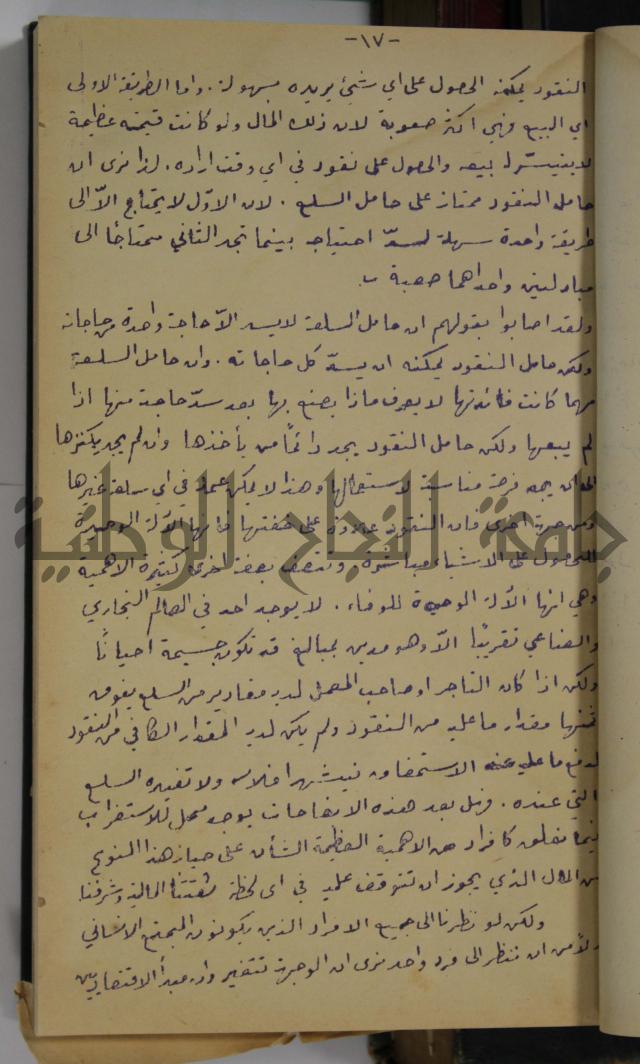 -١٧-
النقود يمكنه الحصول على اي شيئ يريده بسهولة. واما الطريقة الاولى
اي البيع فهي اكثر صعوبة لان ذلك المال ولو كانت قيمته عظيمة
لا يتيسّر له بيعه والحصول على نقود في اي وقت اراده. لذا نرى ان
حامل النقود ممتاز على حامل السلع. لان الاوّل لا يحتاج الاّ الى
طريقة واحدة سهلة لسدّ احتياجه بينما نجد الثاني محتاجًا الى
مبادلتين واحداهما صعبة
ولقد اصابوا بقولهم ان حامل السلعة لا يسد الاّ حاجة واحدة من حاجاته
ولكن حامل النقود يمكنه ان يسدّ كل حاجاته. وان حامل السلعة
مهما كانت فائدتها لا يعرف ماذا يصنع بها بعد سدّ حاجته منها اذا
لم يبعها ولكن حامل النقود يجد دائمًا من يأخذها وان لم يجد يكنزها
الى ان يجد فرصة مناسبة لاستعمالها وهذا لا يمكن عمله في اي سلعة غيرها
ومن جهة اخرى فان النقود علاوة على صفتها بانها الآلة الوحيدة
للحصول على الاشياء مباشرة، وتتصف بصفة اخرى كثيرة الاهمية
وهي انها الآلة الوحيدة للوفاء. لا يوجد احد في العالم التجاري
والصناعي تقريبًا الاّ وهو مدين بمبالغ قد تكون جسيمة احيانًا
ولكن اذا كان التاجر او صاحب المعمل لديه مقادير من السلع يفوق
ثمنها مقدار ما عليه من النقود ولم يكن لديه المقدار الكافي من النقود
لدفع ما عليه عند الاستحقاق فيشهر افلاسه ولا تفيده السلع
التي عنده. فهل بعد هذه الايضاحات يوجد محل للاستغراب
فيما نعلق كافراد من الاهمية العظيمة الشأن على حيازة هذا النوع
من المال الذي يجوز ان تتوقف عليه في اي لحظة ثقتنا المالية وشرفنا
ولكن لو نظرنا الى جميع الافراد الذين يكونون المجتمع الانساني
بدلاً من ان ننظر الى فرد واحد نرى ان الوجهة تتغير وان مبدأ الاقتصاديين
جامعة النجاح الوطنية